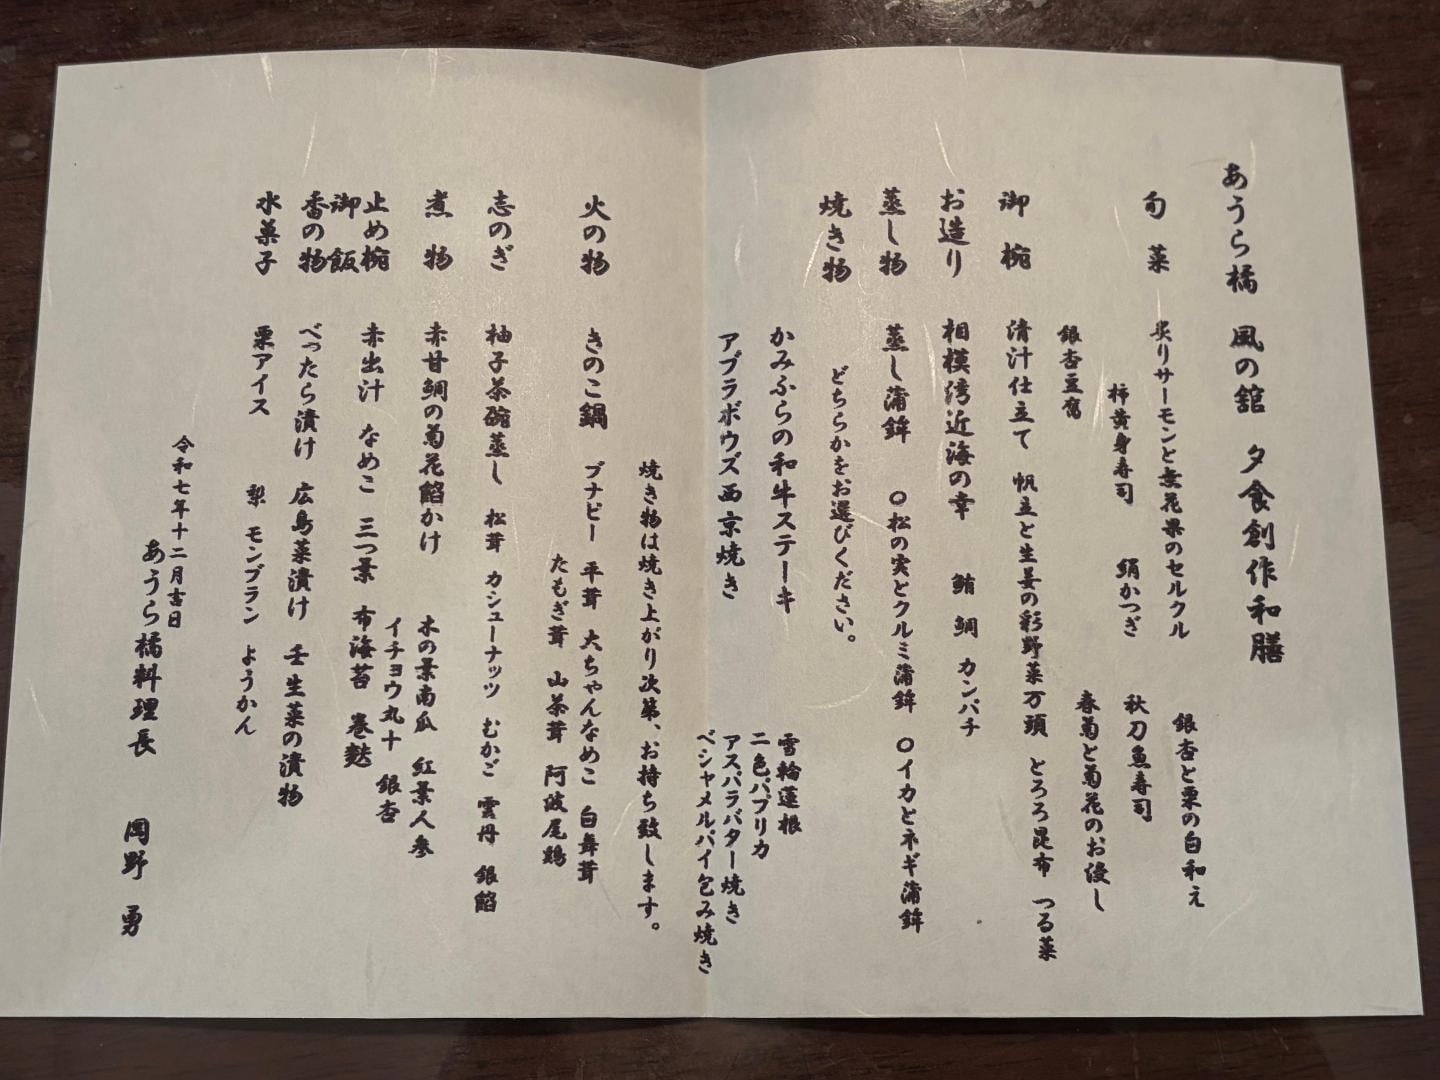 あうら橘 風の舘 夕食創作和膳
旬菜 炙りサーモンと無花果のセルクル 銀杏と栗の白和え
柿黄身寿司 絹かつぎ 秋刀魚寿司
銀杏豆腐 春菊と菊花のお浸し
御椀 清汁仕立て 帆立と生姜の彩野菜万頭 とろろ昆布 つる菜
お造り 相模湾近海の幸 鮪 鯛 カンパチ
蒸し物 蒸し蒲鉾 〇松の実とクルミ蒲鉾 〇イカとネギ蒲鉾
焼き物 どちらかをお選びください。
かみふらの和牛ステーキ 雪輪蓮根
二色パプリカ
アブラボウズ西京焼き アスパラバター焼き
ベシャメルパイ包み焼き
焼き物は焼き上がり次第、お持ち致します。
火の物 きのこ鍋 ブナピー 平茸 大ちゃんなめこ 白舞茸
たもぎ茸 山茶茸 阿波尾鶏
志のぎ 柚子茶碗蒸し 松茸 カシューナッツ むかご 雲丹 銀餡
煮物 赤甘鯛の菊花餡かけ 木の葉南瓜 紅葉人参
イチョウ丸十 銀杏
止め椀 赤出汁 なめこ 三つ葉 布海苔 巻麩
御飯
香の物 べったら漬け 広島菜漬け 壬生菜の漬物
水菓子 栗アイス 梨 モンブラン ようかん
令和七年十二月吉日
あうら橘料理長 岡野 勇